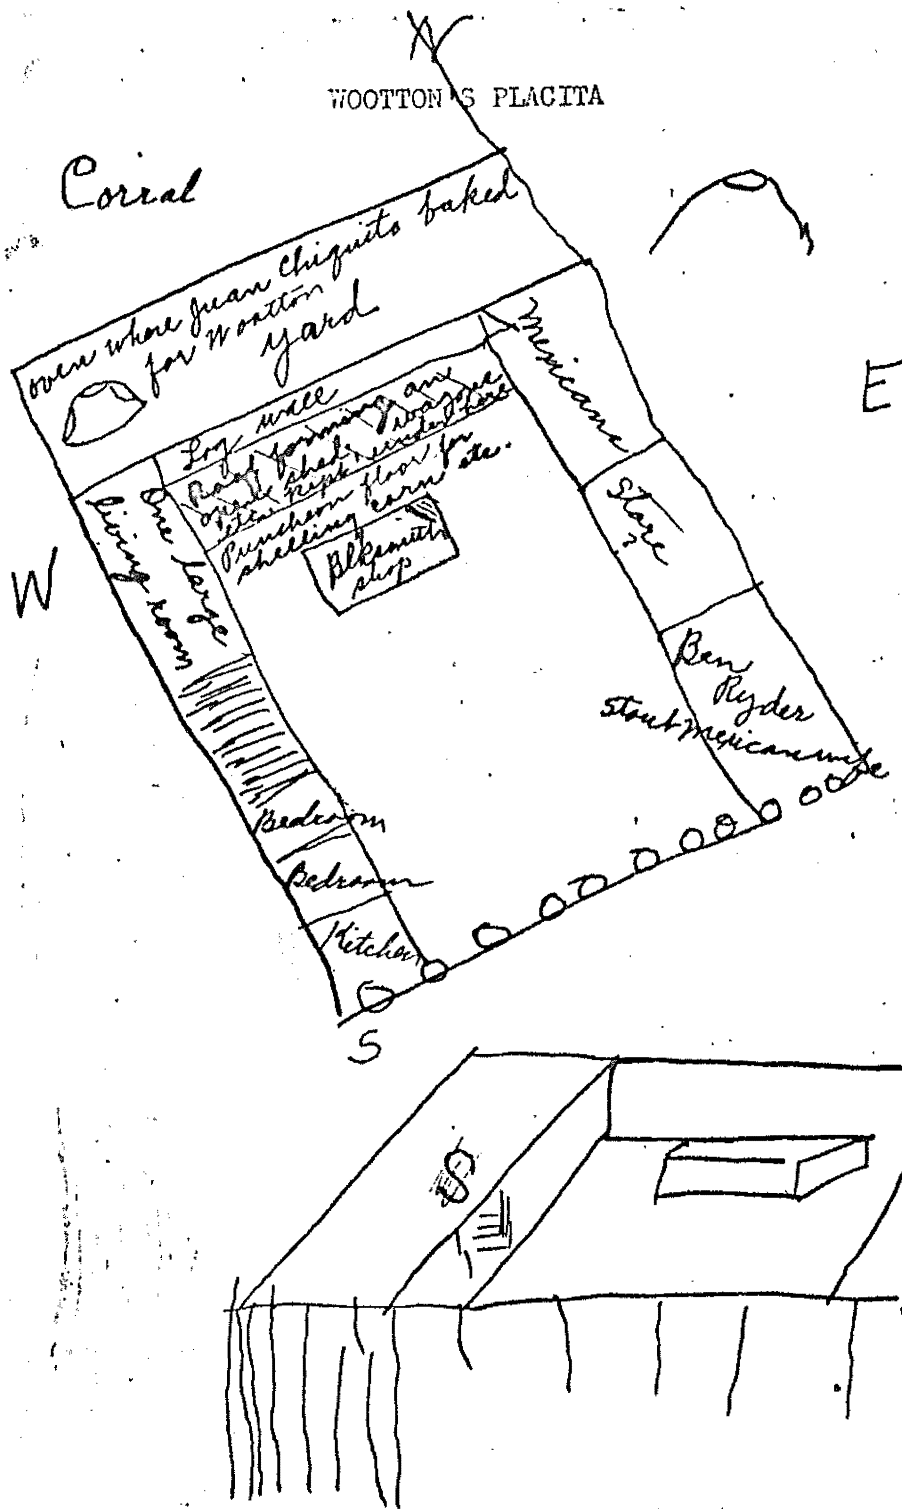 N
WOOTTON'S PLACITA
Corral
oven where Juan Chiquito baked
for Wootton
yard
E
Mexicans
Log wall
Roof forming an
open shed. Wagons
etc. kept under here
Puncheon floor for
shelling corn etc.
Blksmith
shop
One large
living room
Store
?
W
Ben
Ryder
stout Mexican wife
Bedroom
Bedroom
Kitchen
S
S